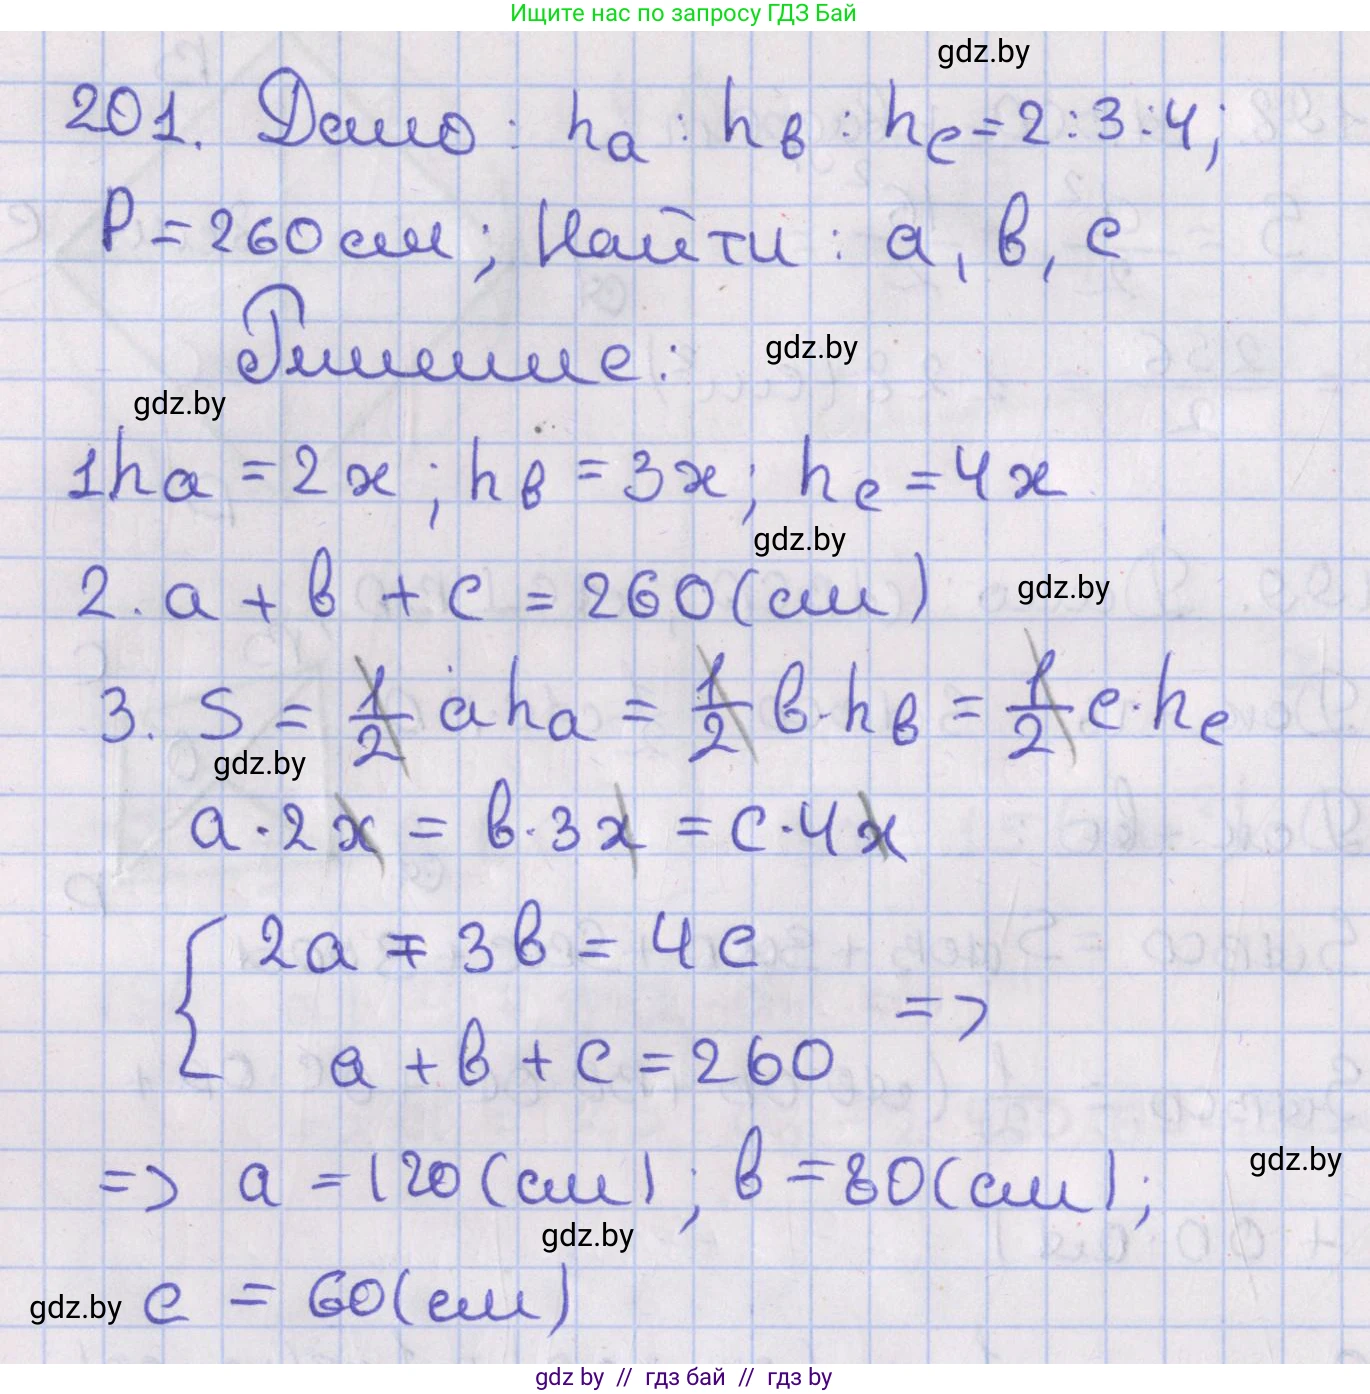 Ищите нас по запросу ГДЗ Бай
gdz.by
201. Дано: hₐ : h_в : h_c = 2:3:4;
P = 260 см; Найти: a, в, c
Решение:
gdz.by
gdz.by
1 hₐ = 2x; h_в = 3x; h_c = 4x
gdz.by
2. a + в + c = 260 (см)
gdz.by
3. S = 1/2 a hₐ = 1/2 в·h_в = 1/2 c·h_c
gdz.by
a·2x = в·3x = c·4x
{ 2a = 3в = 4c
a + в + c = 260 =>
=> a = 120 (см); в = 80 (см);
gdz.by
gdz.by
gdz.by
c = 60 (см)
gdz.by // гдз бай // гдз by